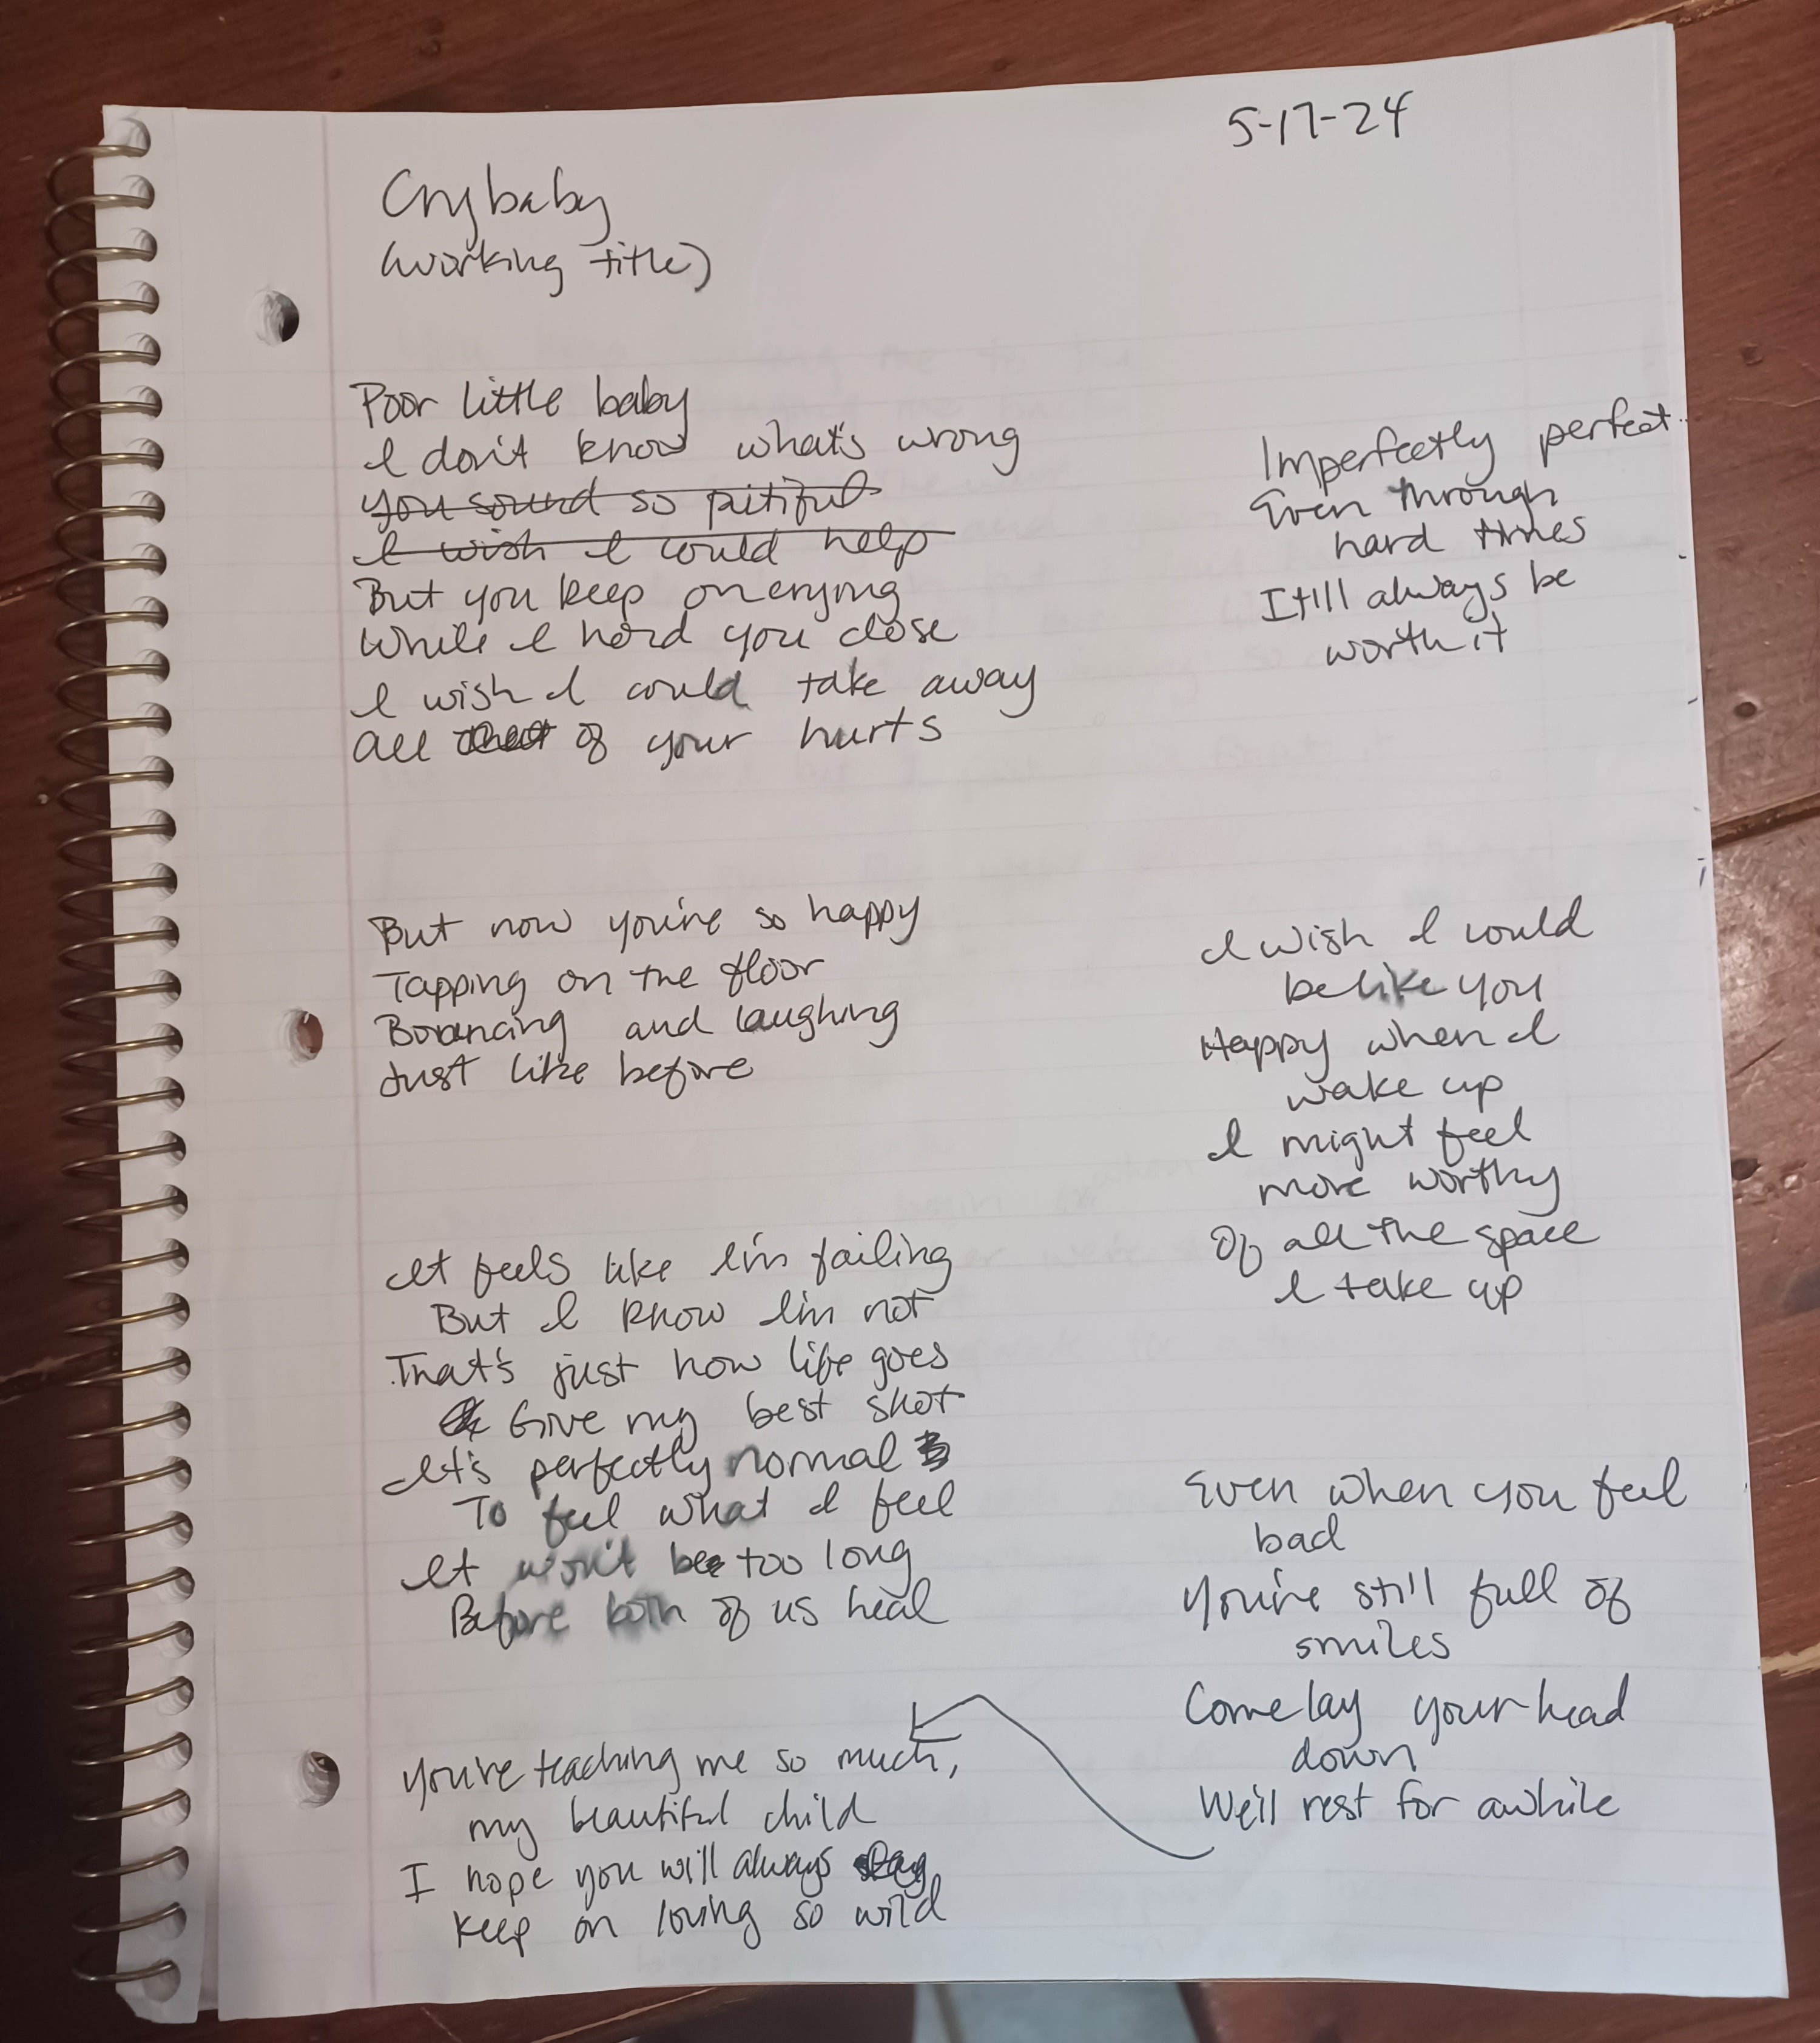 5-17-24
Crybaby
(working title)
Poor little baby
I don't know what's wrong
You sound so pitiful
I wish I could help
But you keep on crying
While I hold you close
I wish I could take away
All of your hurts
But now you're so happy
Tapping on the floor
Bouncing and laughing
Just like before
It feels like I'm failing
But I know I'm not
That's just how life goes
Give my best shot
It's perfectly normal
To feel what I feel
It won't be too long
Before both of us heal
You're teaching me so much,
my beautiful child
I hope you will always
Keep on loving so wild
Imperfectly perfect
Even through
hard times
It'll always be
worth it
I wish I could
be like you
Happy when I
wake up
I might feel
more worthy
Of all the space
I take up
Even when you feel
bad
You're still full of
smiles
Come lay your head
down
We'll rest for awhile